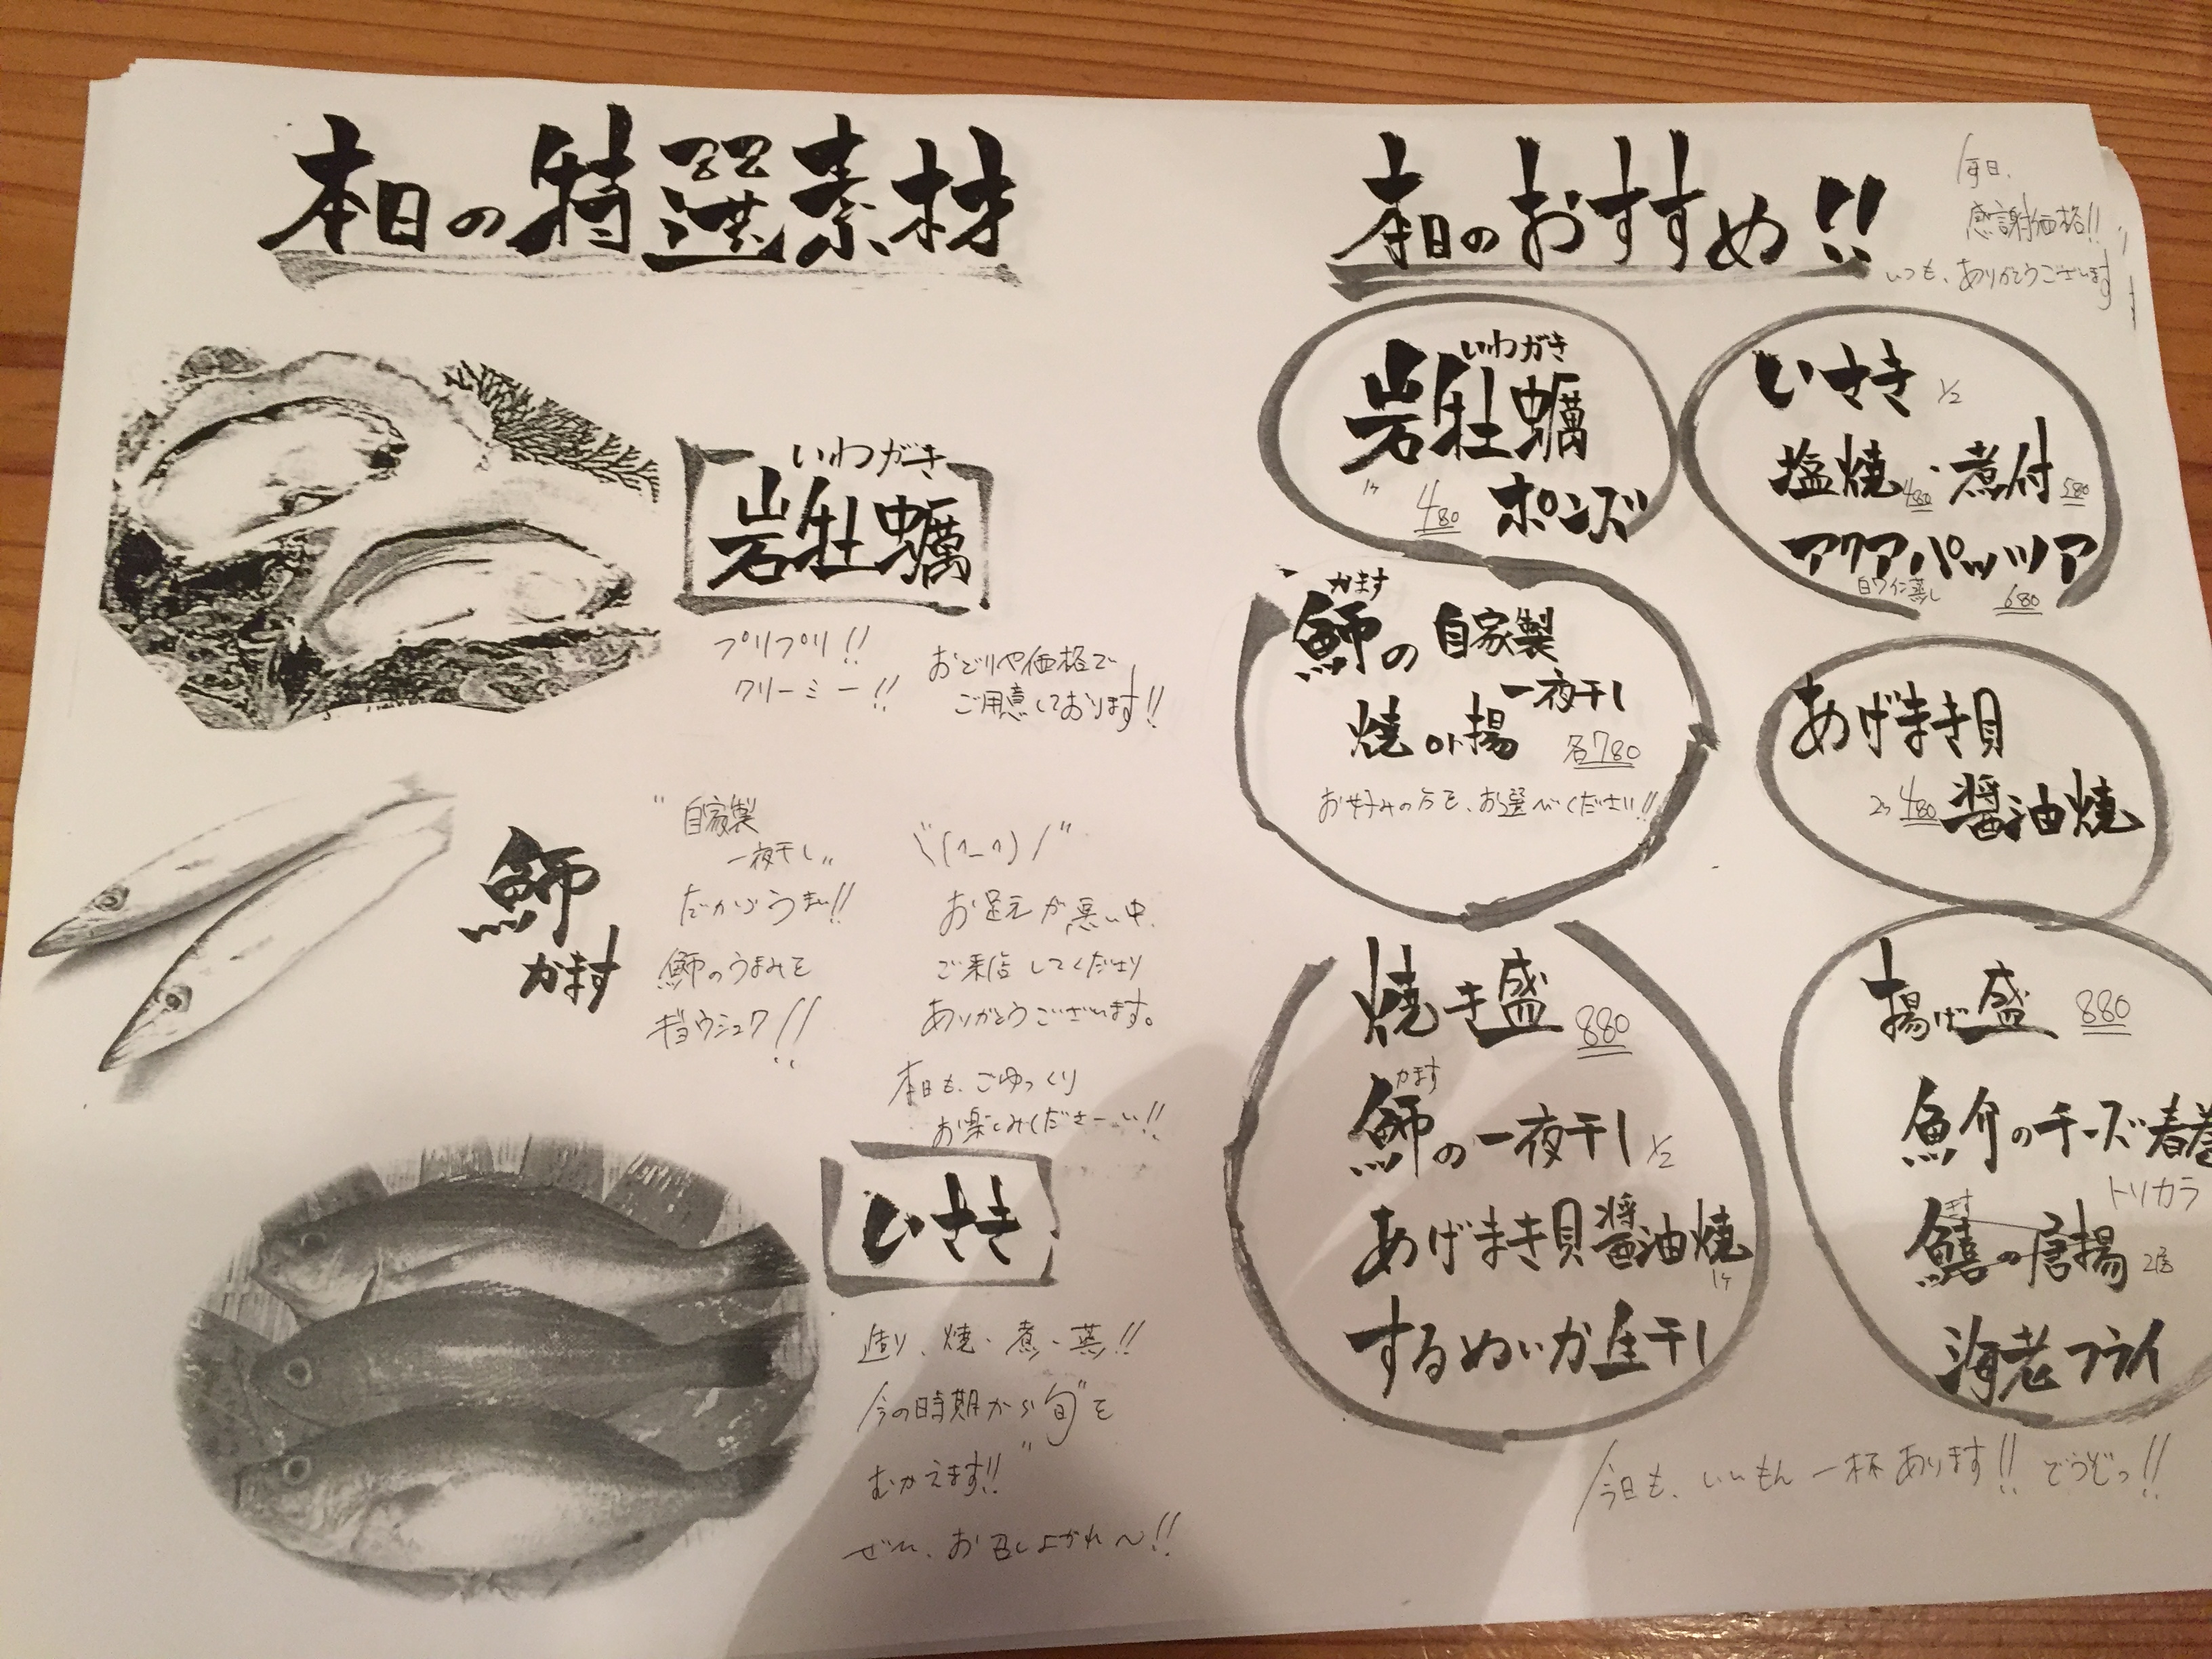 本日の特選素材
いわがき
岩牡蠣
プリプリ!!
クリーミー!!
おどりや価格で
ご用意しております!!
鰤
かます
"自家製
一夜干し"
だからうまい!!
鰤のうまみを
ギョウシュク!!
\(^_^)/
お足元が悪い中、
ご来店してくださり
ありがとうございます。
本日も、ごゆっくり
お楽しみくださーい!!
いさき
造り、焼・煮・蒸!!
今の時期から"旬"を
むかえます!!
ぜひ、お召しよがれ〜!!
本日のおすすめ!!
毎日、
感謝価格!!
いつも、ありがとうございます
いわがき
岩牡蠣
1ヶ 480 ポンズ
いさき 1/2
塩焼 480・煮付 580
アクアパッツァ
白ワイン蒸し 680
かます
鰤の自家製
一夜干し
焼or揚 各780
お好みの方を、お選べください!!
あげまき貝
2ヶ 480 醤油焼
焼き盛 880
かます
鰤の一夜干し 1/2
あげまき貝醤油焼
1ヶ
するめいか生干し
揚げ盛 880
魚介のチーズ春巻
トリカラ
キス
鱚の唐揚 2尾
海老フライ
今日も、いいもん一杯あります!! どうぞっ!!